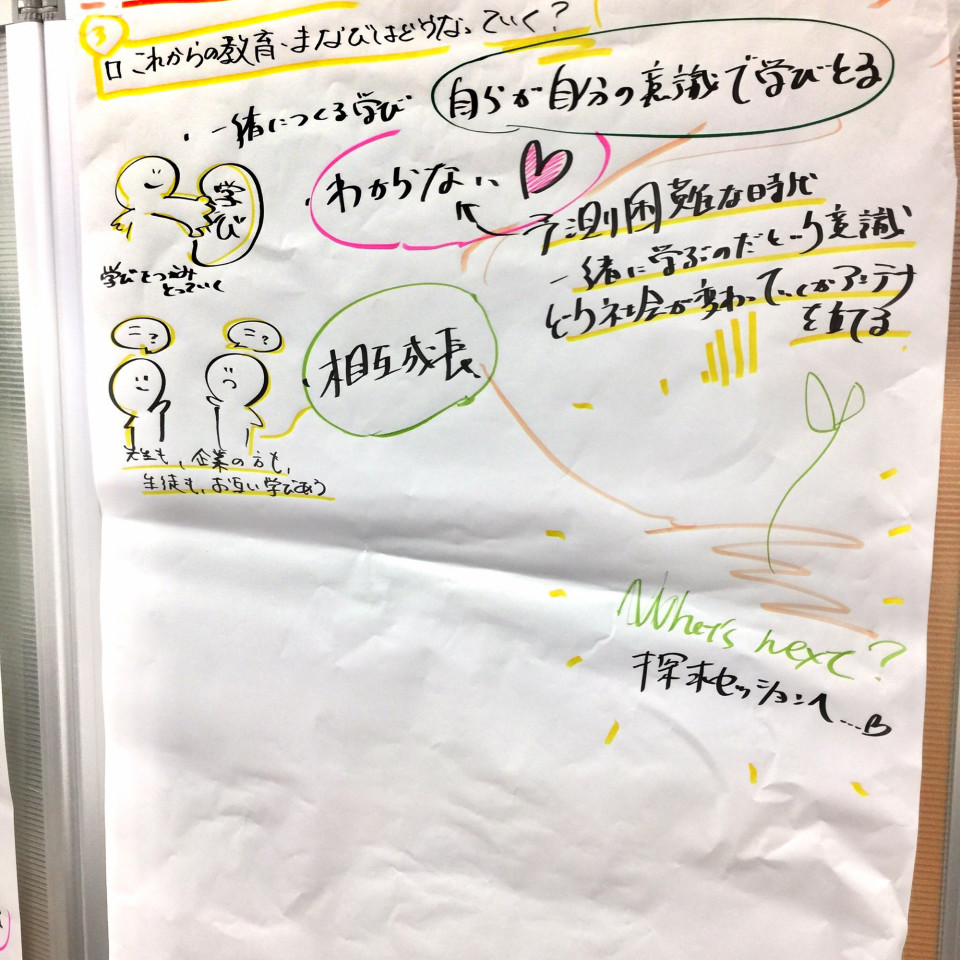 3
これからの教育、まなびはどうなっていく?
・一緒につくる学び
自らが自分の意識で学びとる
学び
学びをつかみ
とっていく
・わからない
予測困難な時代
一緒に学ぶのだという意識
どう社会が変わっていくかアンテナ
を立てる
・相互成長
先生も、企業の方も、
生徒も、お互い学びあう
What's next?
探求セッションへ